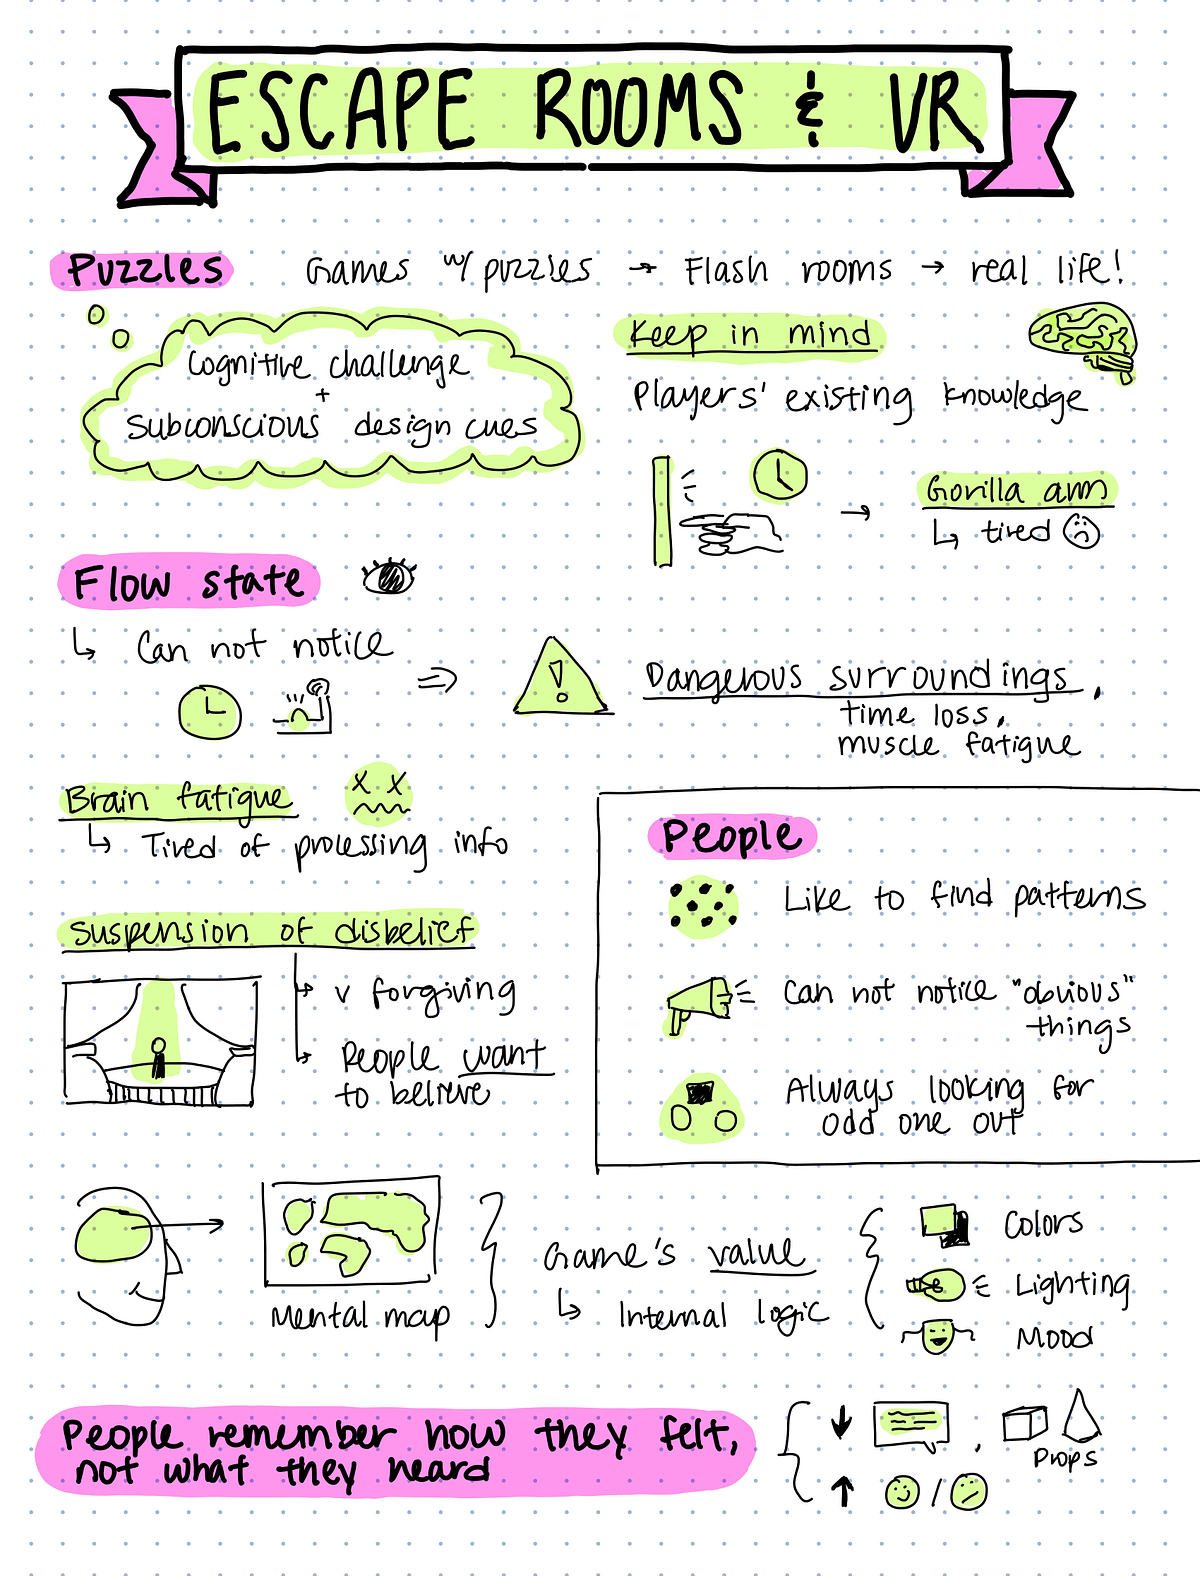 ESCAPE ROOMS & VR
Puzzles
Games w/ puzzles → Flash rooms → real life!
Cognitive challenge
+
Subconscious design cues
Keep in mind
Players' existing knowledge
Gorilla arm
↳ tired
Flow state
↳ Can not notice
⇒
!
Dangerous surroundings,
time loss,
muscle fatigue
Brain fatigue
↳ Tired of processing info
Suspension of disbelief
v forgiving
People want
to believe
People
Like to find patterns
Can not notice "obvious"
things
Always looking for
odd one out
Mental map
Game's value
↳ Internal logic
Colors
Lighting
Mood
People remember how they felt,
not what they heard
↓ ,
Props
↑ /